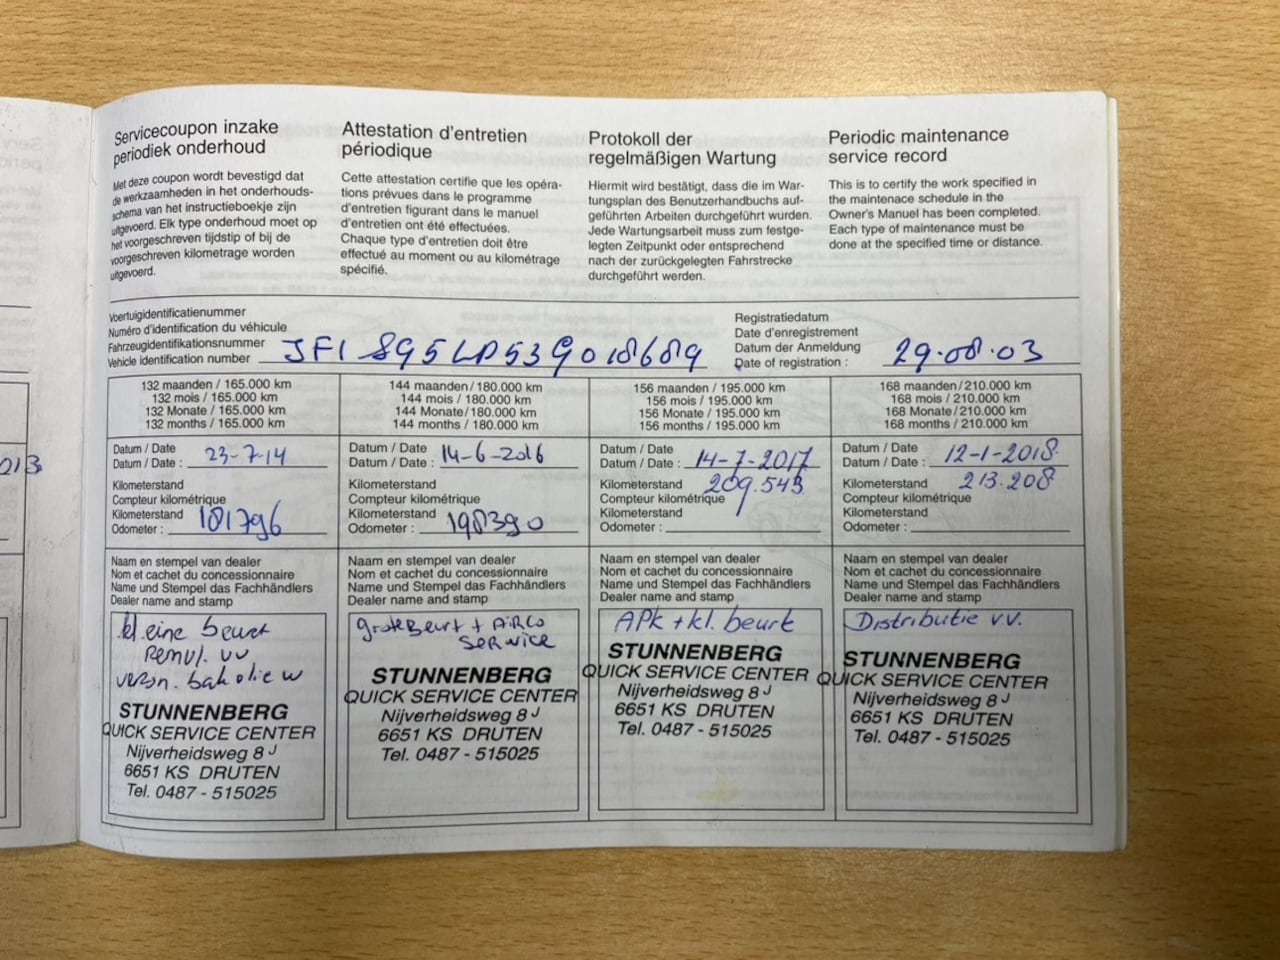 Servicecoupon inzake
periodiek onderhoud
Met deze coupon wordt bevestigd dat
de werkzaamheden in het onderhouds-
schema van het instructieboekje zijn
uitgevoerd. Elk type onderhoud moet op
het voorgeschreven tijdstip of bij de
voorgeschreven kilometrage worden
uitgevoerd.
Attestation d'entretien
périodique
Cette attestation certifie que les opéra-
tions prévues dans le programme
d'entretien figurant dans le manuel
d'entretien ont été effectuées.
Chaque type d'entretien doit être
effectué au moment ou au kilométrage
spécifié.
Protokoll der
regelmäßigen Wartung
Hiermit wird bestätigt, dass die im War-
tungsplan des Benutzerhandbuchs auf-
geführten Arbeiten durchgeführt wurden.
Jede Wartungsarbeit muss zum festge-
legten Zeitpunkt oder entsprechend
nach der zurückgelegten Fahrstrecke
durchgeführt werden.
Periodic maintenance
service record
This is to certify the work specified in
the maintenace schedule in the
Owner's Manuel has been completed.
Each type of maintenance must be
done at the specified time or distance.
Voertuigidentificatienummer
Numéro d'identification du véhicule
Fahrzeugidentifikationsnummer
Vehicle identification number JF1SG5LP53G018689
Registratiedatum
Date d'enregistrement
Datum der Anmeldung
Date of registration : 29.08.03
132 maanden / 165.000 km
132 mois / 165.000 km
132 Monate / 165.000 km
132 months / 165.000 km
Datum / Date
Datum / Date : 23-7-14
Kilometerstand
Compteur kilométrique
Kilometerstand
Odometer : 181796
Naam en stempel van dealer
Nom et cachet du concessionnaire
Name und Stempel das Fachhändlers
Dealer name and stamp
kleine beurt
Remvl. vv
versn. bak olie w
STUNNENBERG
QUICK SERVICE CENTER
Nijverheidsweg 8 J
6651 KS DRUTEN
Tel. 0487 - 515025
144 maanden / 180.000 km
144 mois / 180.000 km
144 Monate / 180.000 km
144 months / 180.000 km
Datum / Date
Datum / Date : 14-6-2016
Kilometerstand
Compteur kilométrique
Kilometerstand
Odometer : 198390
Naam en stempel van dealer
Nom et cachet du concessionnaire
Name und Stempel das Fachhändlers
Dealer name and stamp
grote Beurt + AIRCO
SERVICE
STUNNENBERG
QUICK SERVICE CENTER
Nijverheidsweg 8 J
6651 KS DRUTEN
Tel. 0487 - 515025
156 maanden / 195.000 km
156 mois / 195.000 km
156 Monate / 195.000 km
156 months / 195.000 km
Datum / Date
Datum / Date : 14-7-2017
Kilometerstand 209.543
Compteur kilométrique
Kilometerstand
Odometer :
Naam en stempel van dealer
Nom et cachet du concessionnaire
Name und Stempel das Fachhändlers
Dealer name and stamp
APK + kl. beurt
STUNNENBERG
QUICK SERVICE CENTER
Nijverheidsweg 8 J
6651 KS DRUTEN
Tel. 0487 - 515025
168 maanden / 210.000 km
168 mois / 210.000 km
168 Monate / 210.000 km
168 months / 210.000 km
Datum / Date
Datum / Date : 12-1-2018.
Kilometerstand 213.208
Compteur kilométrique
Kilometerstand
Odometer :
Naam en stempel van dealer
Nom et cachet du concessionnaire
Name und Stempel das Fachhändlers
Dealer name and stamp
Distributie v.v.
STUNNENBERG
QUICK SERVICE CENTER
Nijverheidsweg 8 J
6651 KS DRUTEN
Tel. 0487 - 515025